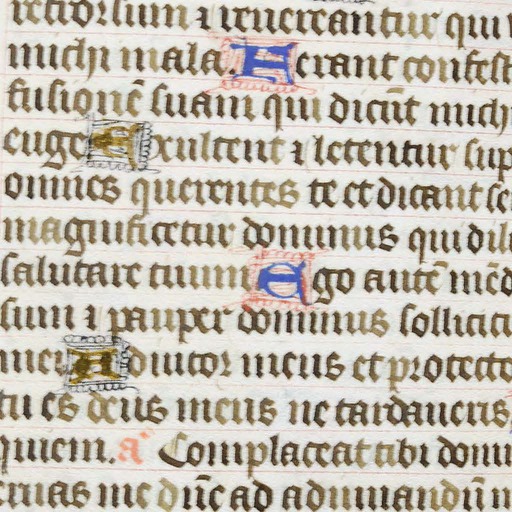 retrorsum ⁊ reuereantur qui
michi mala Ferant confest
fusionē suam qui dicūt mich
euge Exultent ⁊ letentur sup
omnes querentes te et dicant se
magnificetur dominus qui dil
salutare tuum Ego autē mēd
sum ⁊ pauper dominus sollicit
mei Adiutor meus et protecto
tu es deus meus ne tardaueris
quiem. a Complaceat tibi domi
eruas me dn̄e ad adiuuandū m